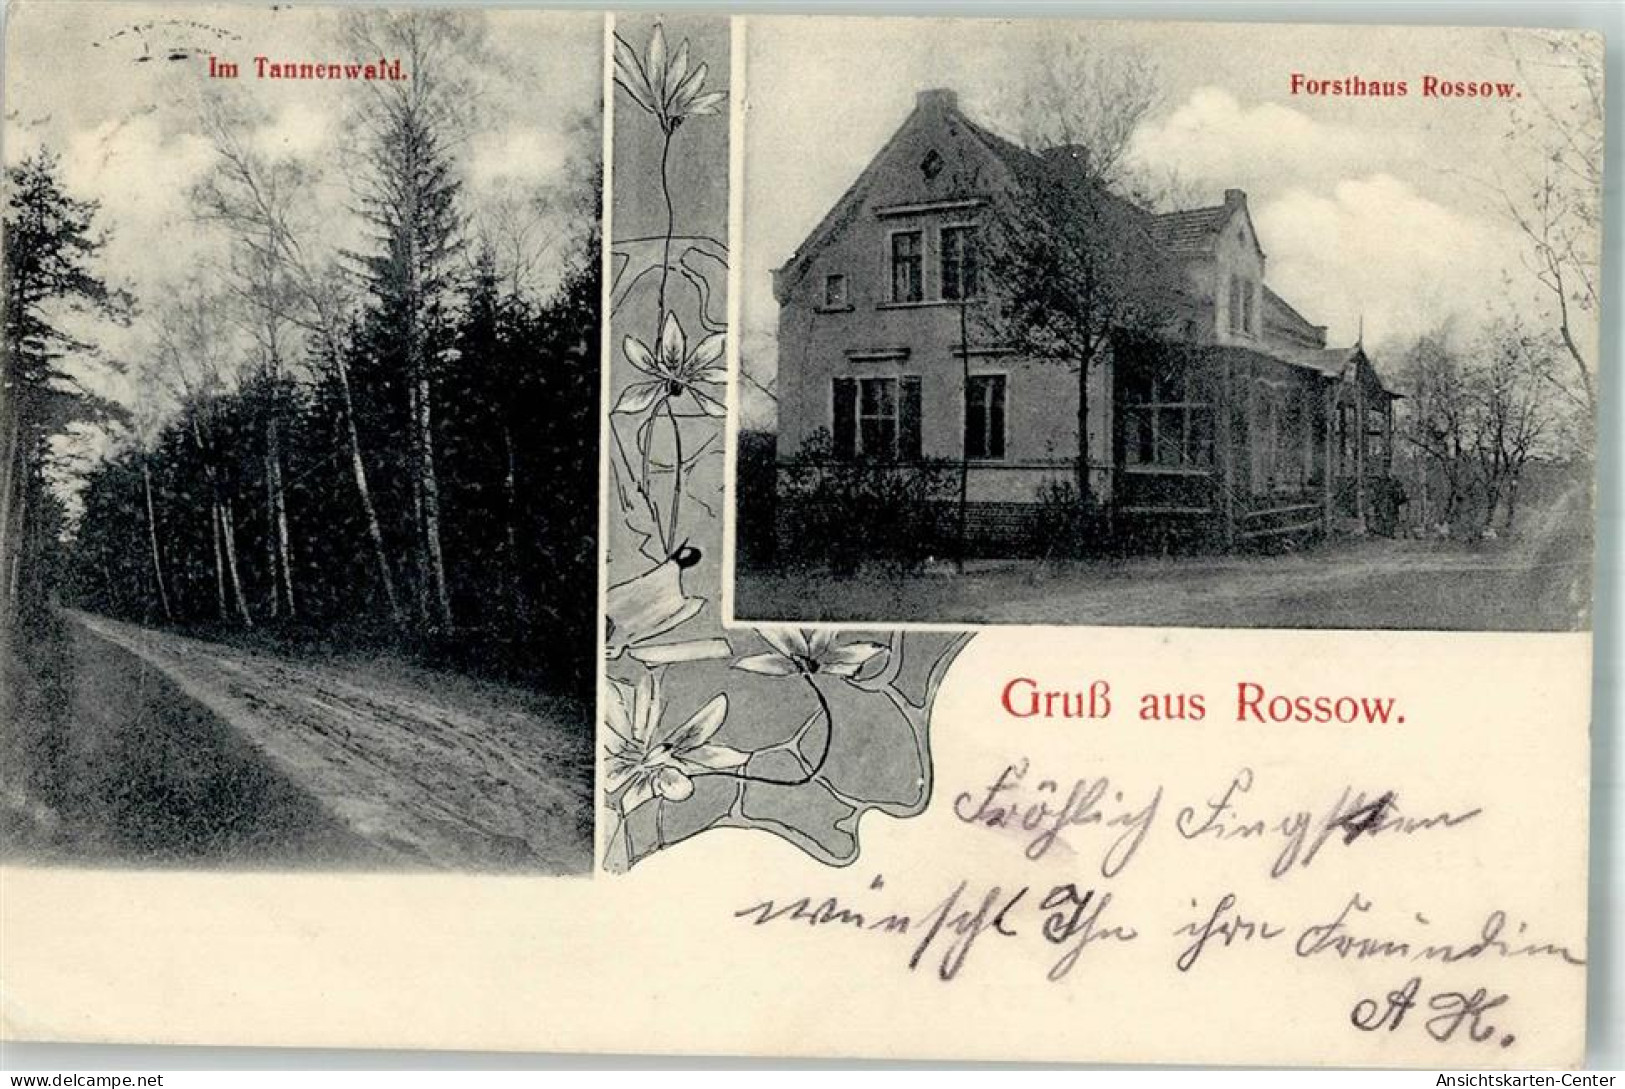 Im Tannenwald.
Forsthaus Rossow.
Gruß aus Rossow.
Fröhlich Fingsten
wünscht Ihn ihre Freundin
A K.
Ansichtskarten-Center